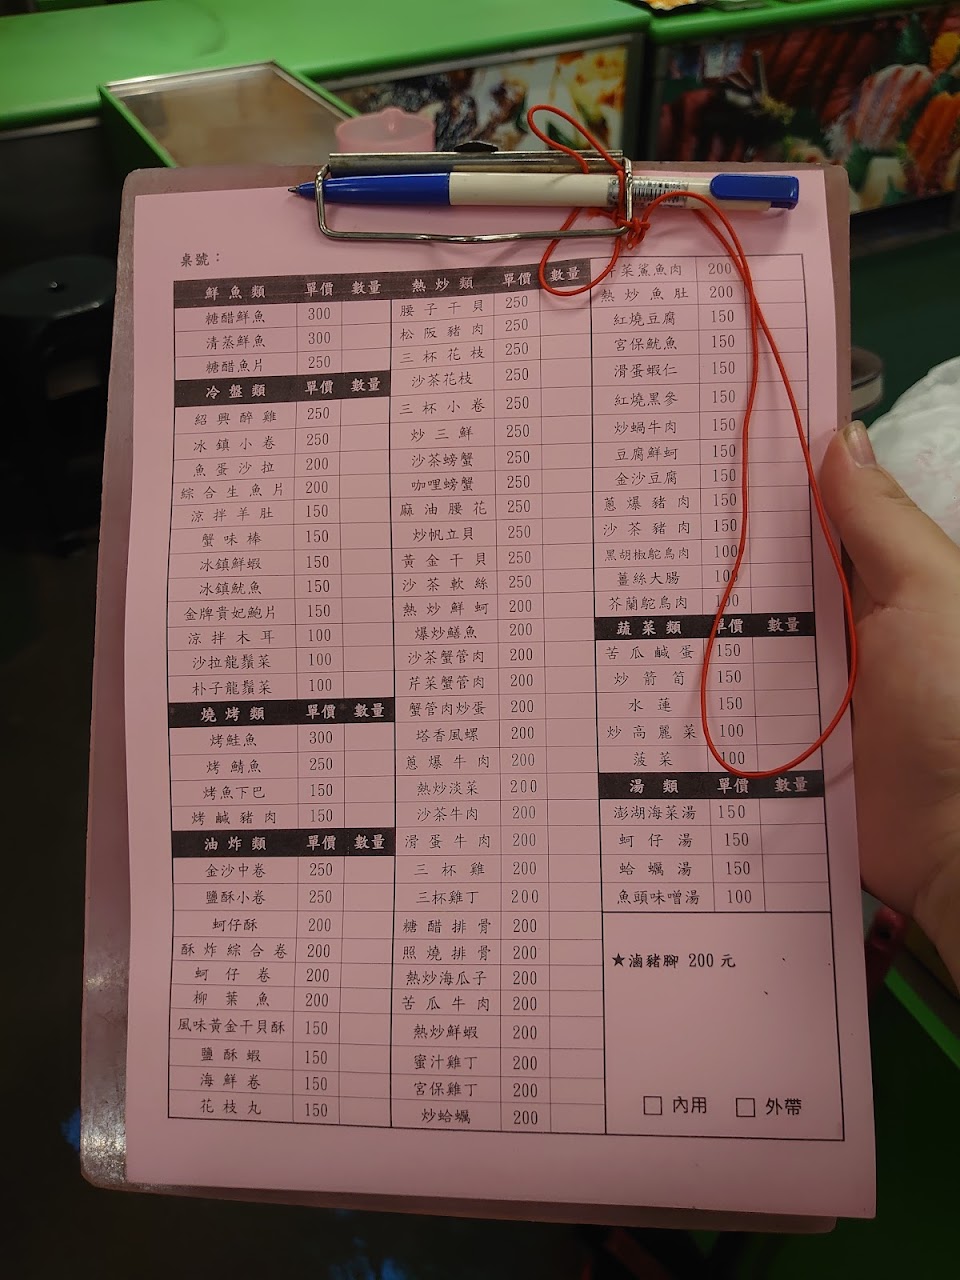 桌號：
鮮魚類 單價 數量
糖醋鮮魚 300
清蒸鮮魚 300
糖醋魚片 250
冷盤類 單價 數量
紹興醉雞 250
冰鎮小卷 250
魚蛋沙拉 200
綜合生魚片 200
涼拌羊肚 150
蟹味棒 150
冰鎮鮮蝦 150
冰鎮魷魚 150
金牌貴妃鮑片 150
涼拌木耳 100
沙拉龍鬚菜 100
朴子龍鬚菜 100
燒烤類 單價 數量
烤鮭魚 300
烤鯖魚 250
烤魚下巴 150
烤鹹豬肉 150
油炸類 單價 數量
金沙中卷 250
鹽酥小卷 250
蚵仔酥 200
酥炸綜合卷 200
蚵仔卷 200
柳葉魚 200
風味黃金干貝酥 150
鹽酥蝦 150
海鮮卷 150
花枝丸 150
熱炒類 單價 數量
腰子干貝 250
松阪豬肉 250
三杯花枝 250
沙茶花枝 250
三杯小卷 250
炒三鮮 250
沙茶螃蟹 250
咖哩螃蟹 250
麻油腰花 250
炒帆立貝 250
黃金干貝 250
沙茶軟絲 250
熱炒鮮蚵 200
爆炒鱔魚 200
沙茶蟹管肉 200
芹菜蟹管肉 200
蟹管肉炒蛋 200
塔香風螺 200
蔥爆牛肉 200
熱炒淡菜 200
沙茶牛肉 200
滑蛋牛肉 200
三杯雞 200
三杯雞丁 200
糖醋排骨 200
照燒排骨 200
熱炒海瓜子 200
苦瓜牛肉 200
熱炒鮮蝦 200
蜜汁雞丁 200
宮保雞丁 200
炒蛤蠣 200
芹菜鯊魚肉 200
熱炒魚肚 200
紅燒豆腐 150
宮保魷魚 150
滑蛋蝦仁 150
紅燒黑參 150
炒蝸牛肉 150
豆腐鮮蚵 150
金沙豆腐 150
蔥爆豬肉 150
沙茶豬肉 150
黑胡椒鴕鳥肉 100
薑絲大腸 100
芥蘭鴕鳥肉 100
蔬菜類 單價 數量
苦瓜鹹蛋 150
炒箭筍 150
水蓮 150
炒高麗菜 100
菠菜 100
湯類 單價 數量
澎湖海菜湯 150
蚵仔湯 150
蛤蠣湯 150
魚頭味噌湯 100
★滷豬腳 200 元
□ 內用 □ 外帶